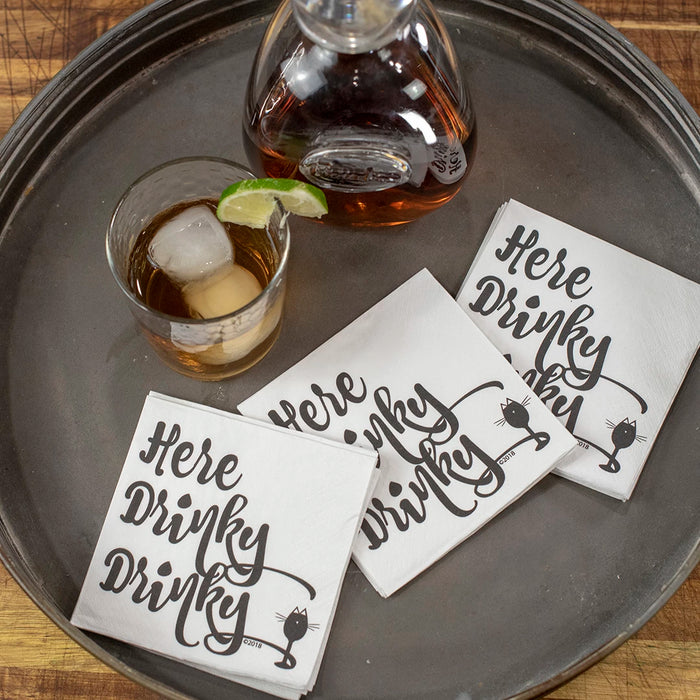 Here
Drinky
Drinky
©2018
Here
Drinky
Drinky
©2018
Here
Drinky
Drinky
©2018